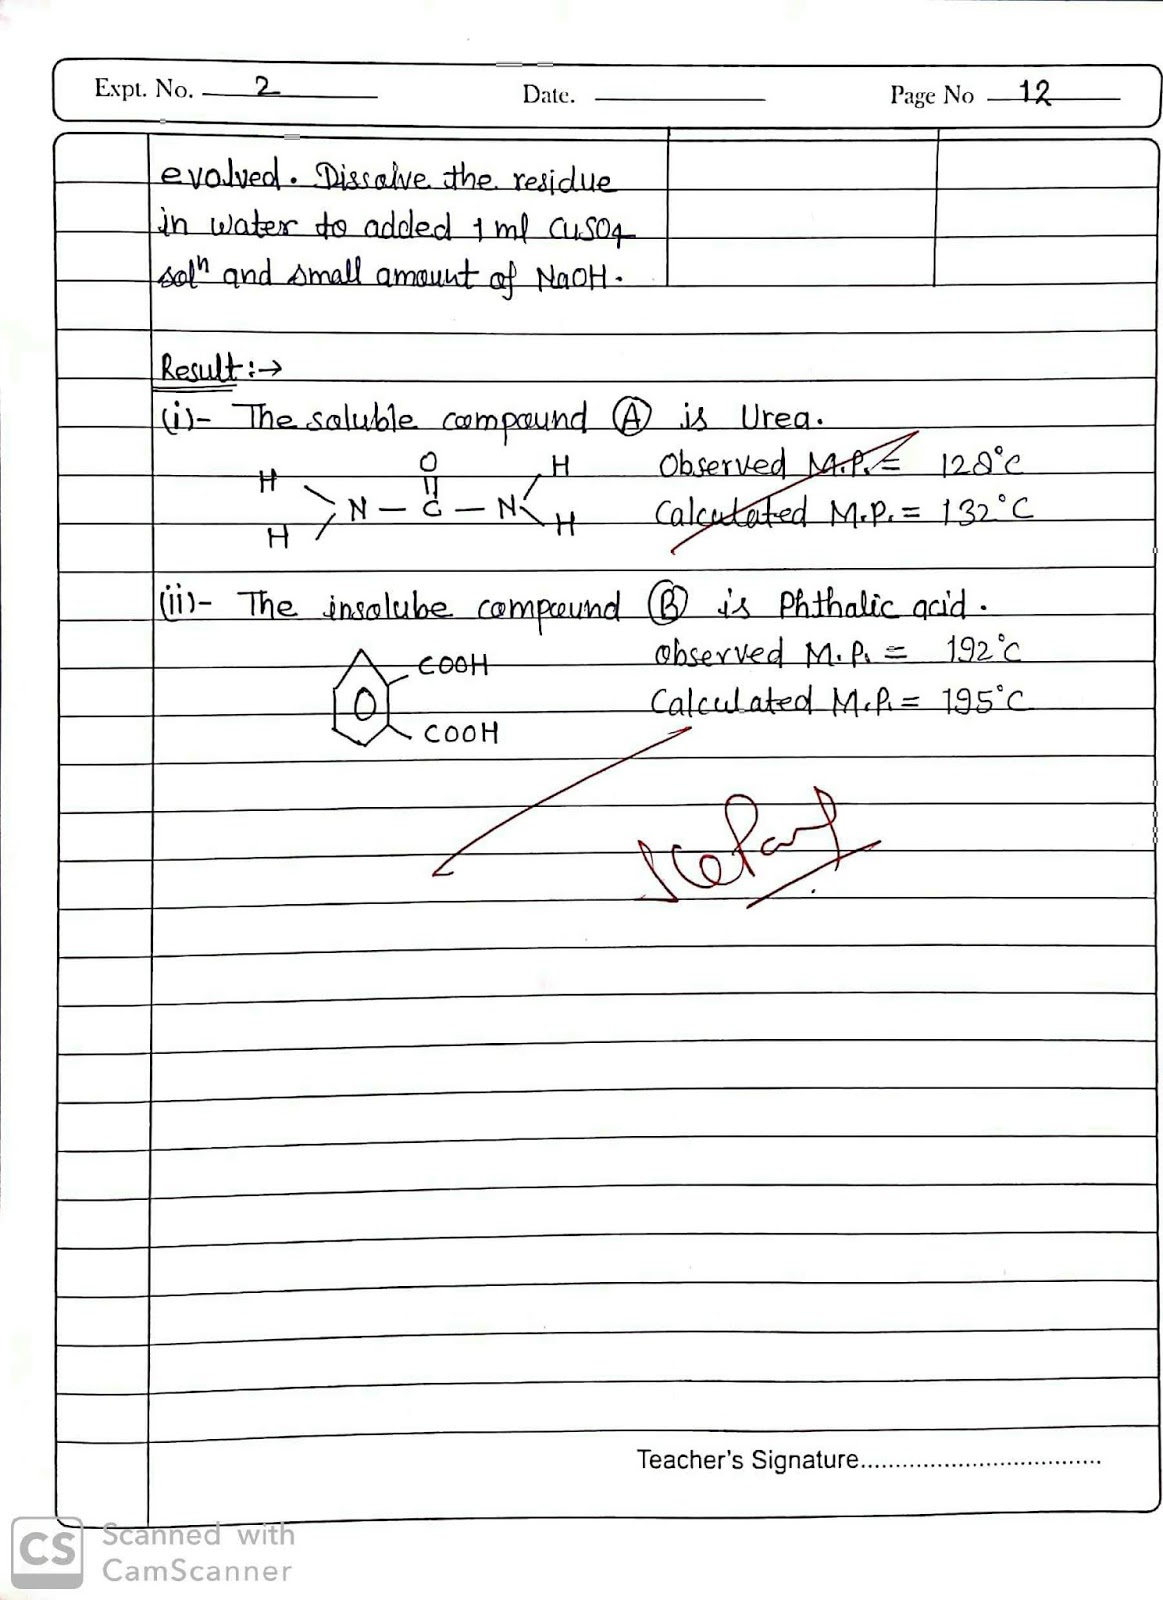 Expt. No. 2 Date. Page No 12
evolved. Dissolve the residue
in water to added 1 ml CuSO4
solⁿ and small amount of NaOH.
Result:→
(i)- The soluble compound Ⓐ is Urea.
Observed M.P. = 128°C
Calculated M.P. = 132°C
H O H
N - C - N
H H
(ii)- The insolube compound Ⓑ is Phthalic acid.
observed M.P. = 192°C
Calculated M.P. = 195°C
COOH
COOH
Teacher's Signature..................................
CS Scanned with
CamScanner